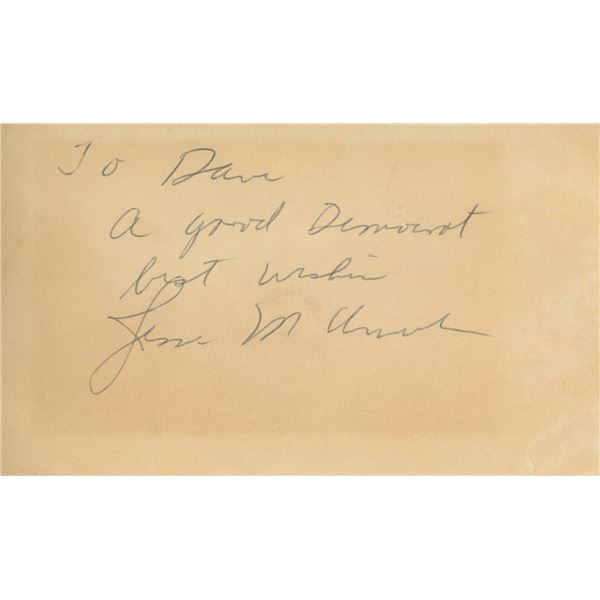 To Dave
A good Democrat
best wishes
Jesse M Unruh